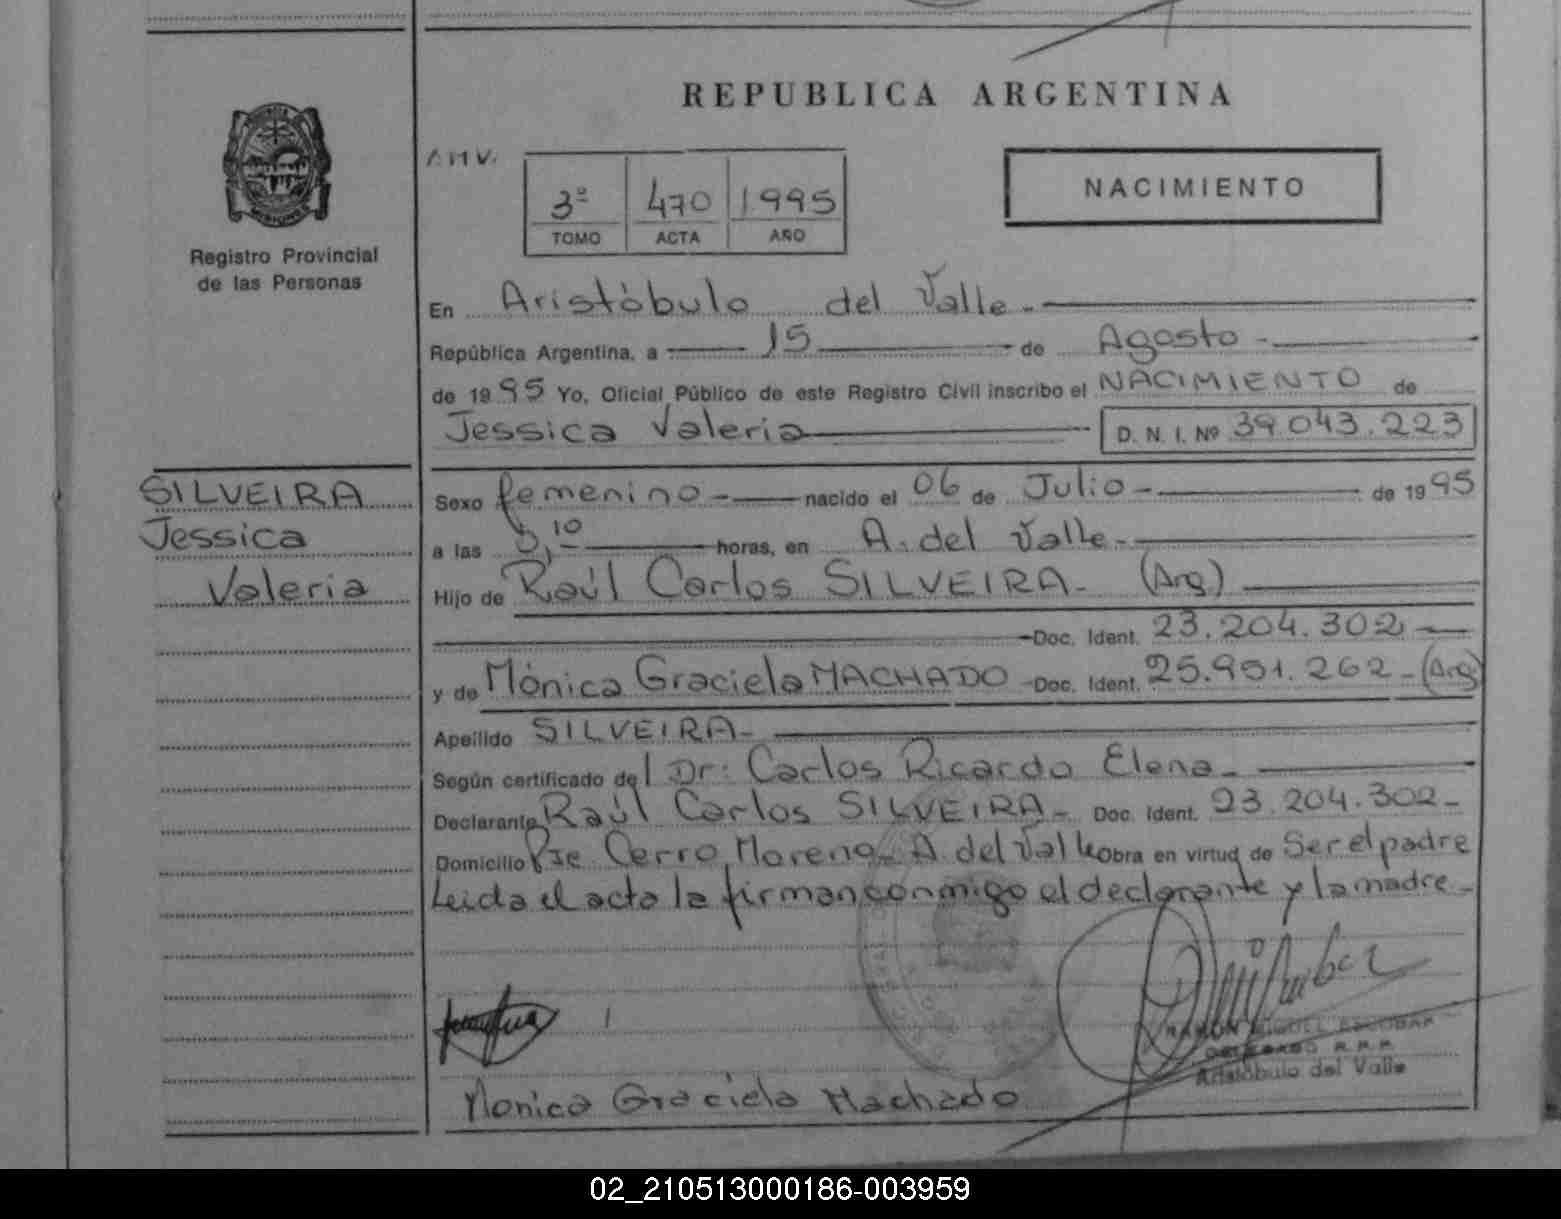 REPUBLICA ARGENTINA
3º 470 1995
TOMO ACTA AÑO
NACIMIENTO
MISIONES
Registro Provincial
de las Personas
En Aristóbulo del Valle.-
República Argentina, a 15 de Agosto -
de 1995 Yo, Oficial Público de este Registro Civil inscribo el NACIMIENTO de
Jessica Valeria D. N. I. Nº 39.043.223
SILVEIRA
Jessica
Valeria
Sexo femenino - nacido el 06 de Julio - de 1995
a las 10 horas, en A. del Valle.-
Hijo de Raúl Carlos SILVEIRA- (Arg)
Doc. Ident. 23.204.302
y de Mónica Graciela MACHADO - Doc. Ident. 25.951.262 - (Arg)
Apellido SILVEIRA-
Según certificado del Dr: Carlos Ricardo Elena -
Declarante Raúl Carlos SILVEIRA - Doc. Ident. 23.204.302-
Domicilio Pje Cerro Moreno - A. del Valle Obra en virtud de Ser el padre
Leida el acta la firman conmigo el declarante y la madre -
RAMON MIGUEL ESCOBAR
DELEGADO R.P.P.
Aristóbulo del Valle
Monica Graciela Machado
02_210513000186-003959